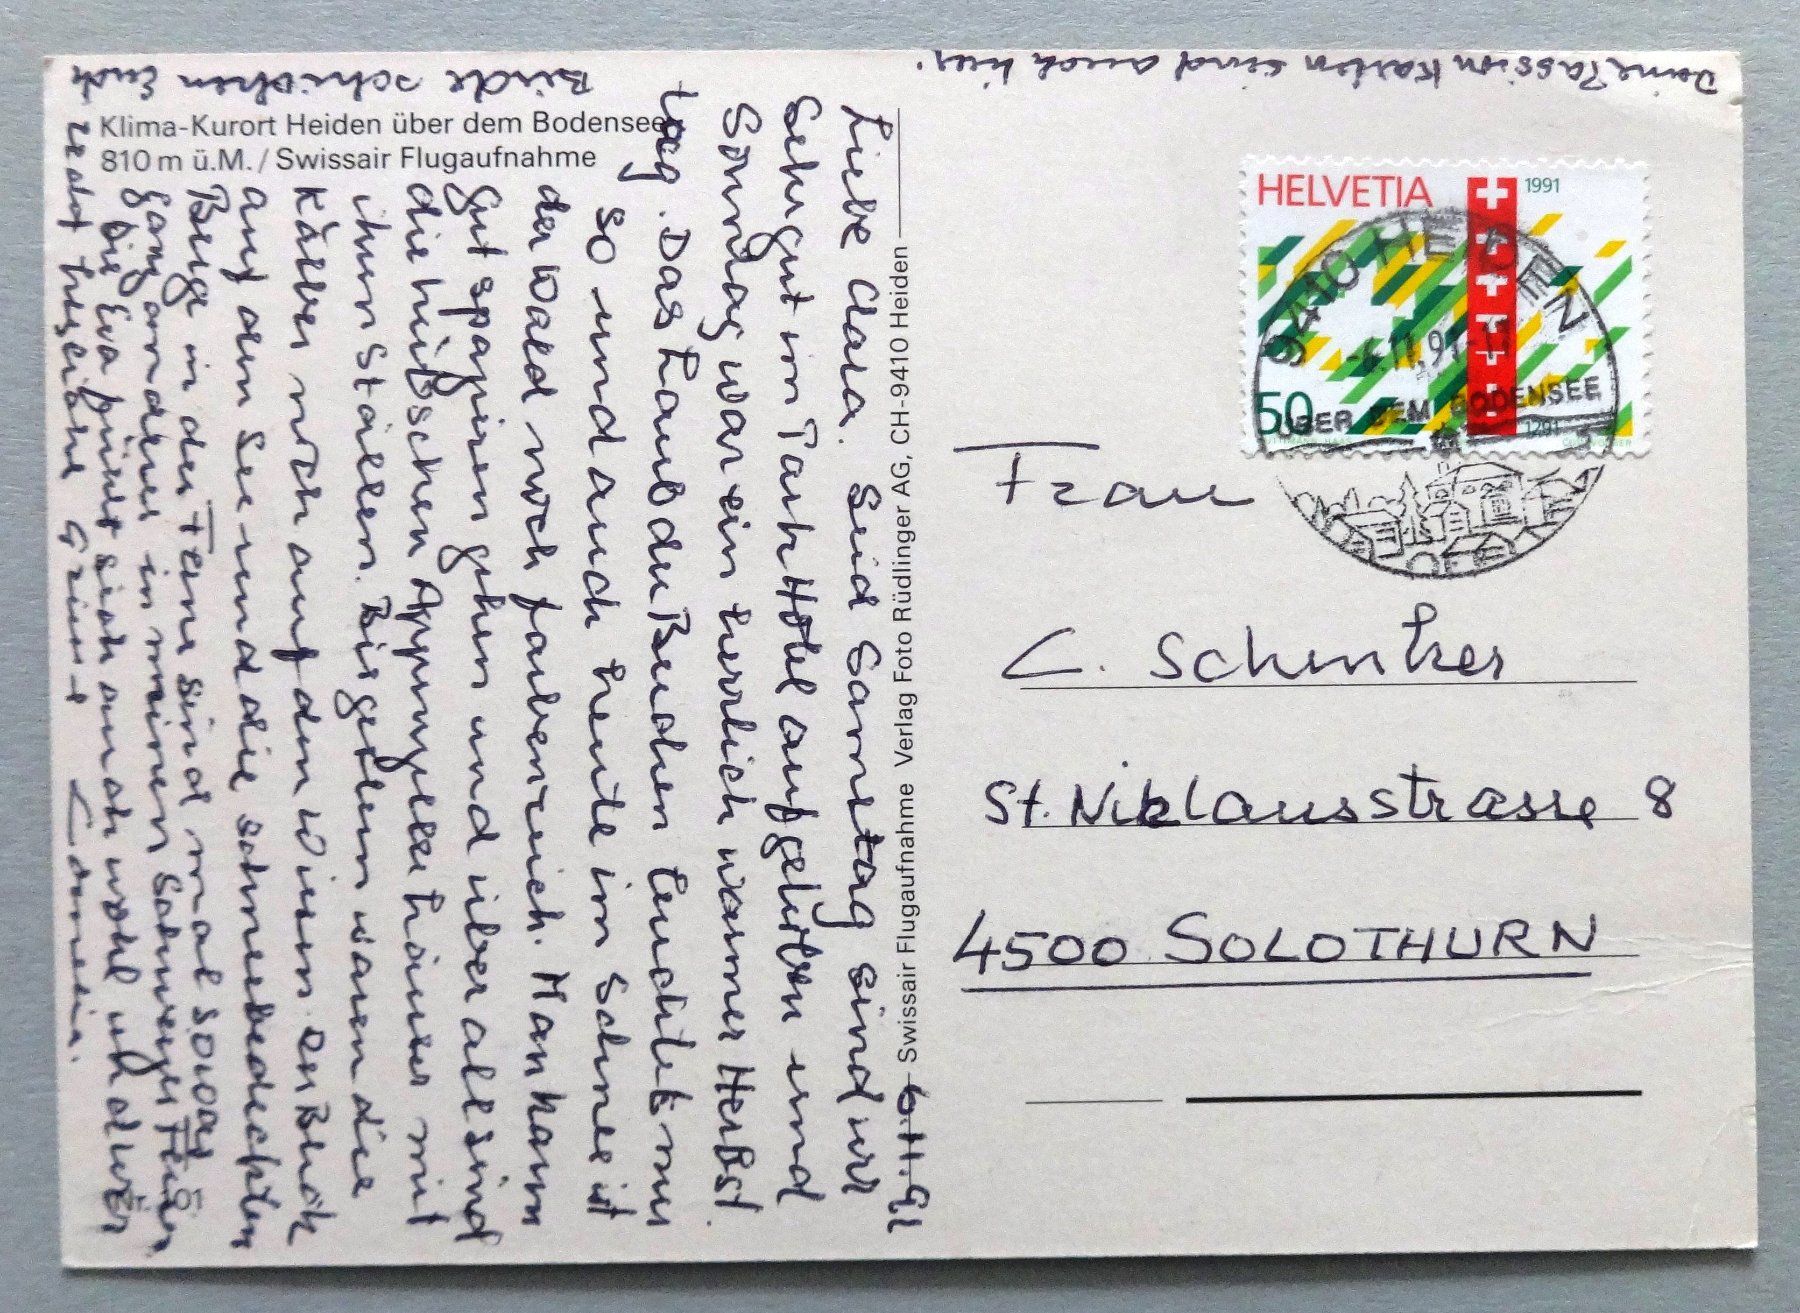 Klima-Kurort Heiden über dem Bodensee
810 m ü.M. / Swissair Flugaufnahme
6.11.91
Liebe Clara. Seid Samstag sind wir
sehr gut im Park Hotel aufgehoben und
Sonntag war ein herrlich warmer Herbst
tag. Das Laub der Buchen leuchtet nur
so und auch heute im Schnee ist
der Wald noch farbenreich. Man kann
gut spazieren gehen und überall sind
die hübschen Appenzellerhäuser mit
ihren Ställen. Bis gestern waren die
Kälber noch auf den Wiesen. Der Blick
auf den See und die schneebedeckten
Berge in der Ferne sind mal so mal
ganz anders in meinen
Die Eva sich auch wohl und wir
Beide schicken Euch
recht herzliche Grüsse
Deine Karten sind auch hier.
Swissair Flugaufnahme Verlag Foto Rüdlinger AG, CH-9410 Heiden
HELVETIA
1991
50
1291
9410 HEIDEN
-6.11.91-
ÜBER DEM BODENSEE
Frau
C. Schenker
St. Niklausstrasse 8
4500 SOLOTHURN